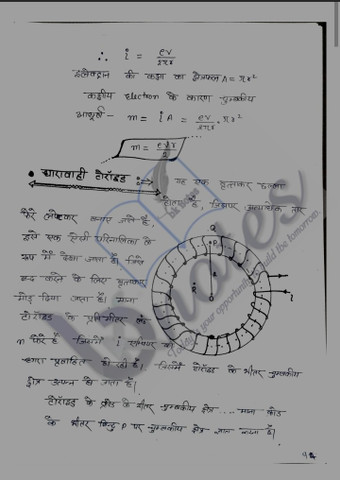 ∴ i = ev/2πr
इलेक्ट्रान की कक्षा का क्षेत्रफल A = πr²
कक्षीय electron के कारण चुम्बकीय
आघूर्ण - m = iA = ev/2πr · πr²
m = evr/2
• धारावाही टोरॉइड :→ यह एक वृत्ताकार छल्ला
होता है, जिसपर अत्यधिक तार
फेरे लपेटकर बनाए जाते हैं,
इसे एक ऐसी परिनालिका के
रूप में देखा जाता है, जिसे
बन्द करने के लिए वृत्ताकार
मोड़ दिया जाता है। माना
टोरॉइड के प्रतिमीटर
n फेरे हैं जिसमें i एम्पियर की
धारा प्रवाहित हो रही है। जिससे टोरॉइड के भीतर चुम्बकीय
क्षेत्र उत्पन्न हो जाता है।
टोरॉइड के क्रोड के भीतर चुम्बकीय क्षेत्र .... माना क्रोड
के भीतर बिन्दु P पर चुम्बकीय क्षेत्र ज्ञात करना है।
Q
P
r
O
i
i
notes
Today is your opportunity to build the tomorrow.